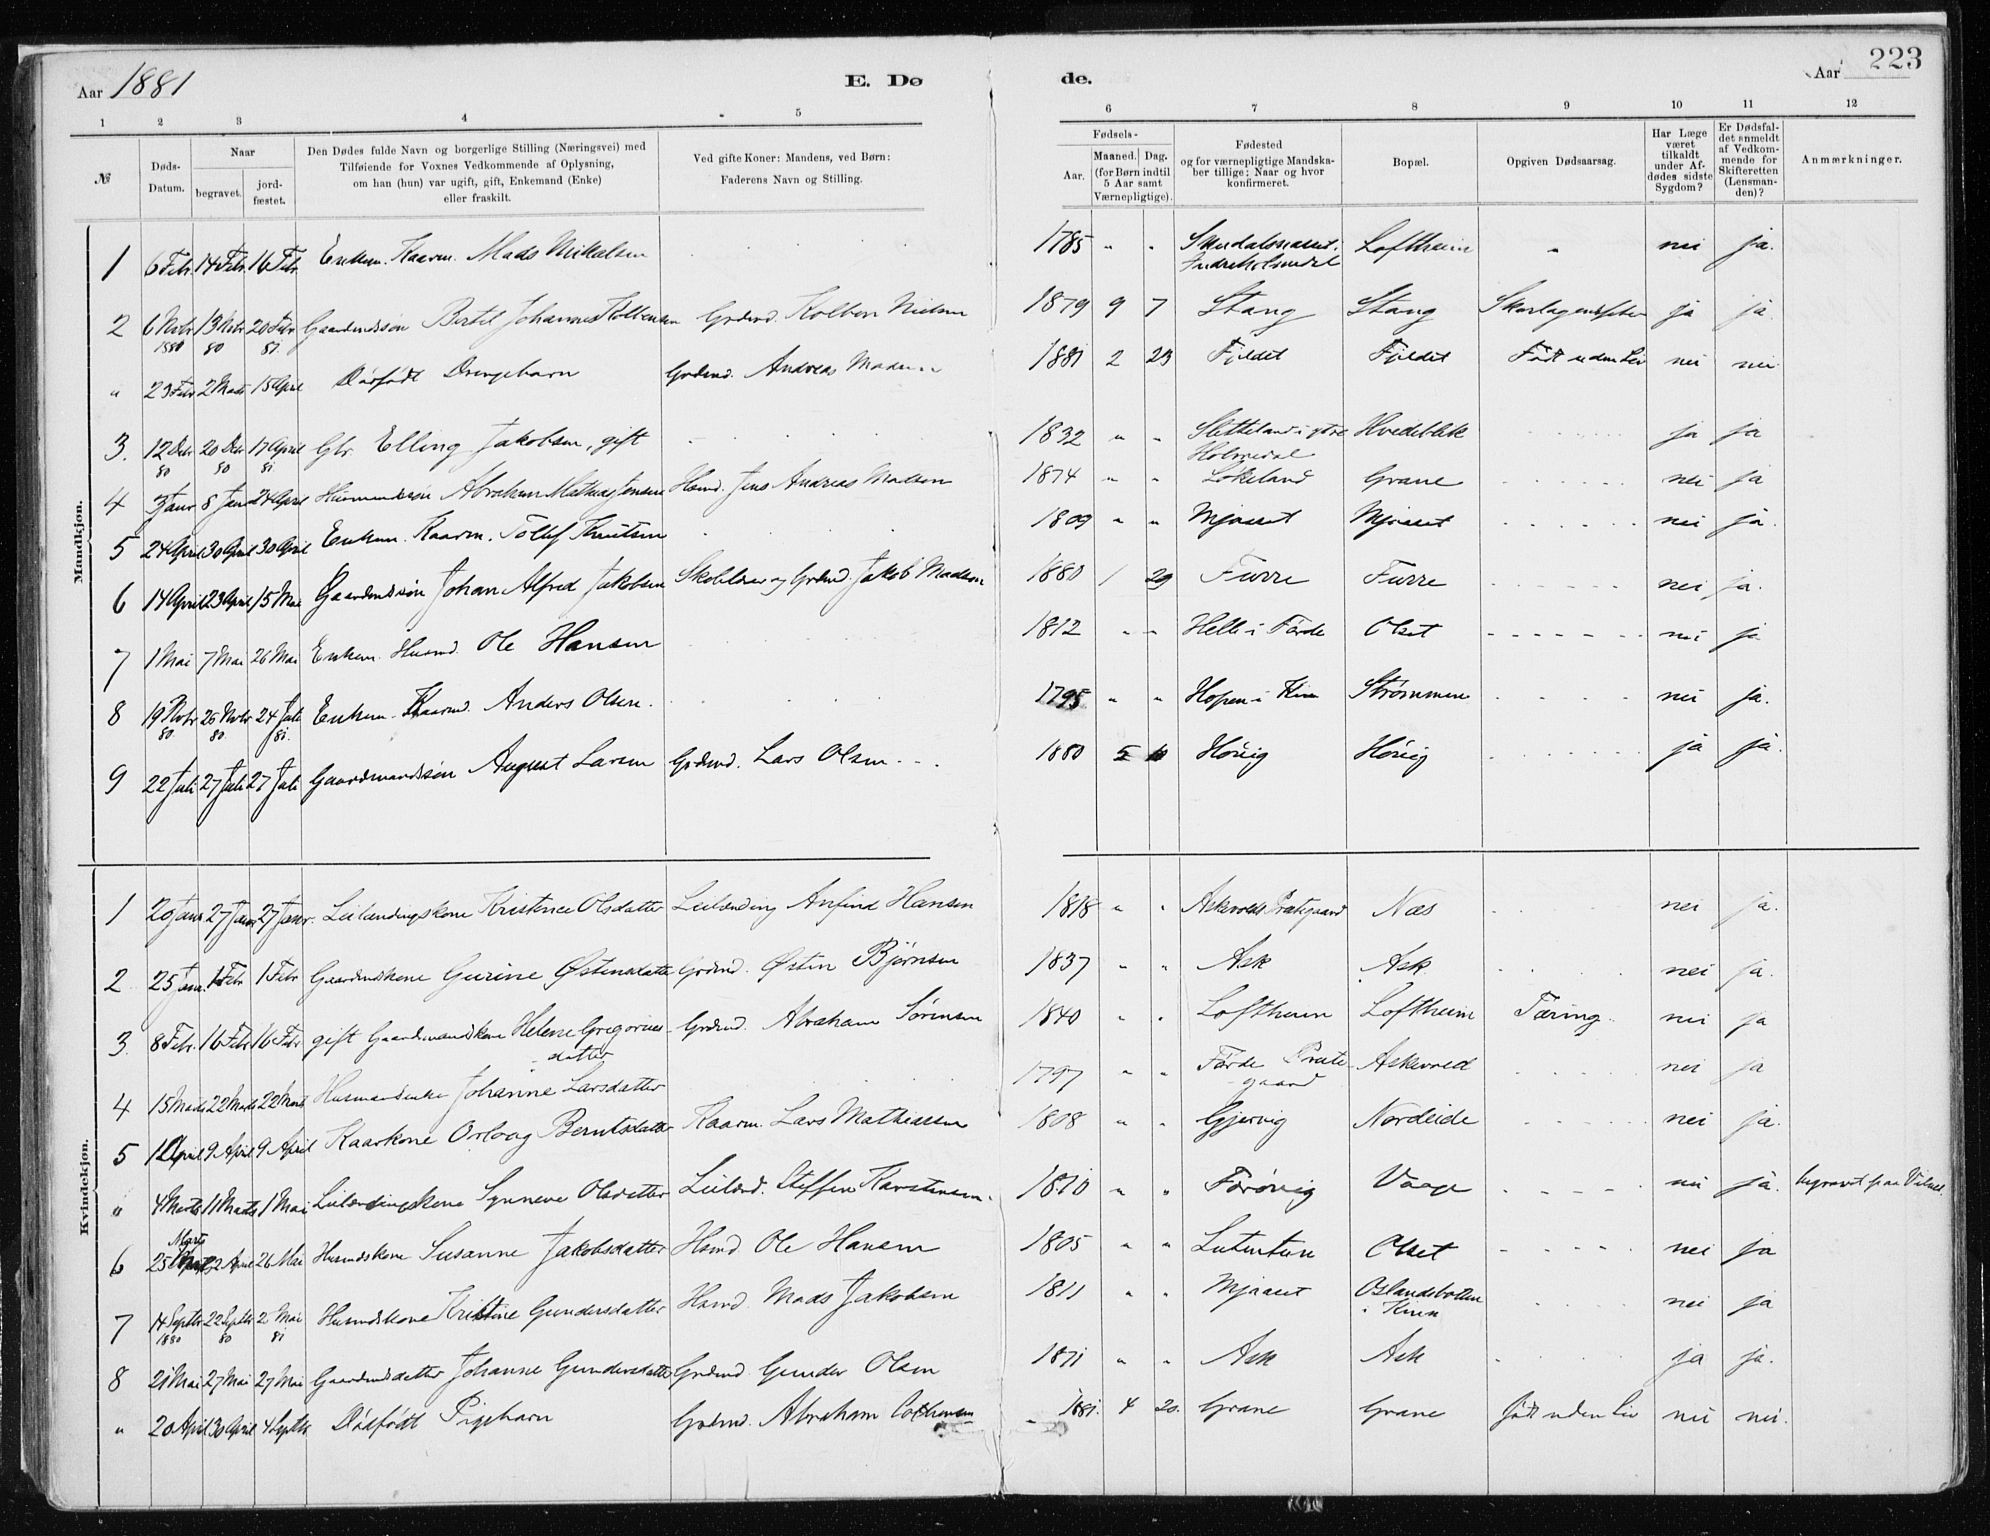 Aar 1881
E. Dø
de.
Aar 223
1 2 3 4 5 6 7 8 9 10 11 12
№
Døds-
Datum.
Naar
begravet.
jord-
fæstet.
Den Dødes fulde Navn og borgerlige Stilling (Næringsvei) med
Tilføiende for Voxnes Vedkommende af Oplysning,
om han (hun) var ugift, gift, Enkemand (Enke)
eller fraskilt.
Ved gifte Koner: Mandens, ved Børn:
Faderens Navn og Stilling.
Fødsels-
Aar.
Maaned. Dag.
(for Børn indtil
5 Aar samt
Værnepligtige).
Fødested
og for værnepligtige Mandska-
ber tillige: Naar og hvor
konfirmeret.
Bopæl.
Opgiven Dødsaarsag.
Har Læge
været
tilkaldt
under Af-
dødes sidste
Sygdom?
Er Dødsfal-
det anmeldt
af Vedkom-
mende for
Skifteretten
(Lensman-
den)?
Anmærkninger.
Mandkjøn.
1 6 Febr 14 Febr 16 Febr Enkem. Kaarm. Mads Mikalsen 1785 " " Loftheim " nei ja.
2 6 Novbr 1880 13 Novbr 80 20 Febr 81. Gaardmdssøn Bertel Johannes Kolbensen Grdmd. Kolben Nielsen 1879 9 7 Stang Stang Skarlagensfeber ja ja.
" 23 Febr 2 Marts 15 April Dødfødt Drengebarn Grdmd. Andreas Madsen 1881 2 23 Fjeldet Fjeldet Født uden Liv nei nei
3. 12 Debr 80 20 Debr 80 17 April 81 Gbr. Elling Jakobsen, gift 1832 " " Sletteland i ytre Holmedal Hvedeblik ja ja
4 3 Janr 8 Janr 24 April Husmandssøn Abraham Mathias Jensen Husmd. Jens Andreas Madsen 1874 " " Løkeland Grane nei ja
5 24 April 30 April 30 April Enkem. Kaarm. Tollef Knutsen 1809 " " Mjaaset Mjaaset nei ja.
6 14 April 23 April 15 Mai Gaardmdssøn Johan Alfred Jakobsen Skolelærer og Grdmd. Jakob Madsen 1880 1 29 Furre Furre nei ja.
7 1 Mai 7 Mai 26 Mai Enkem. Husmd. Ole Hansen 1812 " " Helle i Førde Olset nei ja
8 19 Novbr 80. 25 Novbr 80. 24 Juli 81. Enkem. Kaarmd. Anders Olsen. 1795 " " Hopen i Kin Strømmen nei ja.
9 22 Juli 27 Juli 27 Juli Gaardmandssøn August Larsen Grdmd. Lars Olsen 1880 5 Høivig Høivig ja ja.
Kvindekjøn.
1 20 Janr 27 Janr 27 Janr. Leilændingskone Kristence Olsdatter Leilænding Anfind Hansen 1818 " " Askevolds Præstegaard Næs nei ja.
2 25 Janr. 1 Febr 1 Febr Gaardmdskone Gurine Østensdatter Grdmd. Østen Bjørnsen 1837 " " Ask Ask nei ja.
3. 8 Febr. 16 Febr 16 Febr gift Gaardmandskone Helene Gregorius-
datter Grdmd. Abraham Sørensen 1840 " " Loftheim Loftheim Tæring. nei ja
4 15 Marts 22 Marts 22 Marts Husmandsenke Johanne Larsdatter 1797 " " Førde Præste-
gaard Askevold nei ja
5 1 April 9 April 9 April Kaarkone Orloug Berntsdatter Kaarm. Lars Mathiassen 1808 " " Gjervig Nordeide nei ja.
" 4 Marts 11 Marts 1 Mai Leilændingskone Synneve Olsdatter Leilænd. Steffen Karstensen. 1810 " " Førøvig Vaage nei ja. begravet paa Vilnes.
6 25 Marts 2 April 26 Mai Husmdskone Susanne Jakobsdatter Husmd Ole Hansen 1805 " " Lutentun Olset nei ja
7 14 Septbr 1880 22 Septbr 80 2 Mai 81 Husmdskone Kristine Gundersdatter Husmd Mads Jakobsen 1811 " " Mjaaset Oslandsbotten
i Kinn nei ja
8 21 Mai 27 Mai 27 Mai Gaardmdsdatter Johanne Gundersdatter Grdmd Gunder Olsen 1871 " " Ask Ask ja ja.
" 20 April 30 April 4 Septbr Dødfødt Pigebarn Grdmd. Abraham 1881. 4 20. Grane Grane født uden Liv nei nei.